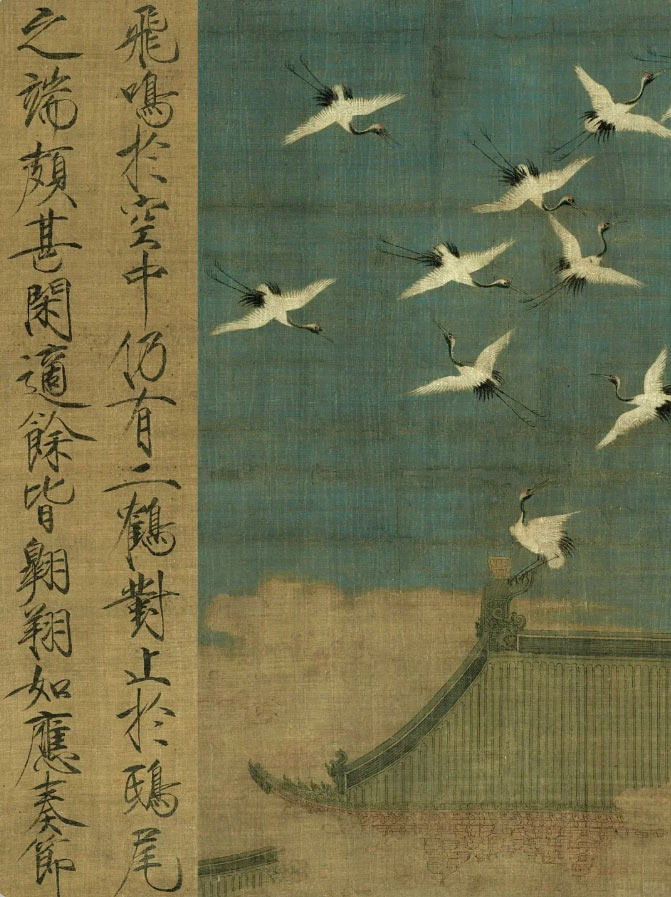 飛鳴於空中仍有二鶴對止於鴟尾
之端頗甚閑適餘皆翺翔如應奏節